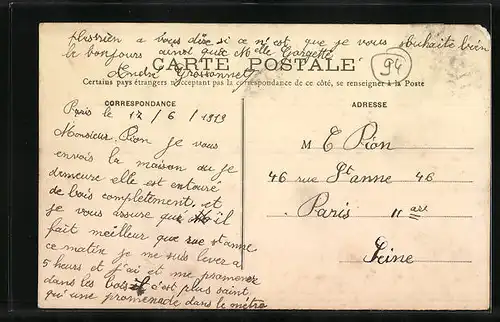 plus rien a vous dire si ce n'est que je vous souhaite bien
le bonjours ainsi que Melle Georgette
André
CARTE POSTALE
Certains pays étrangers n'acceptant pas la correspondance de ce côté, se renseigner à la Poste
94
CORRESPONDANCE
Paris le 17 / 6 / 1919
Monsieur Pion je vous
envois la maison ou je
demeure elle est entouré
de bois complètement, et
je vous assure qu'il
fait meilleur que rue st anne
ce matin je me suis lever a
5 heurs et j'ai et me promener
dans les bois c'est plus saint
qu'une promenade dans le métro
ADRESSE
M E Pion
46 rue St anne 46
Paris 11 art
Seine